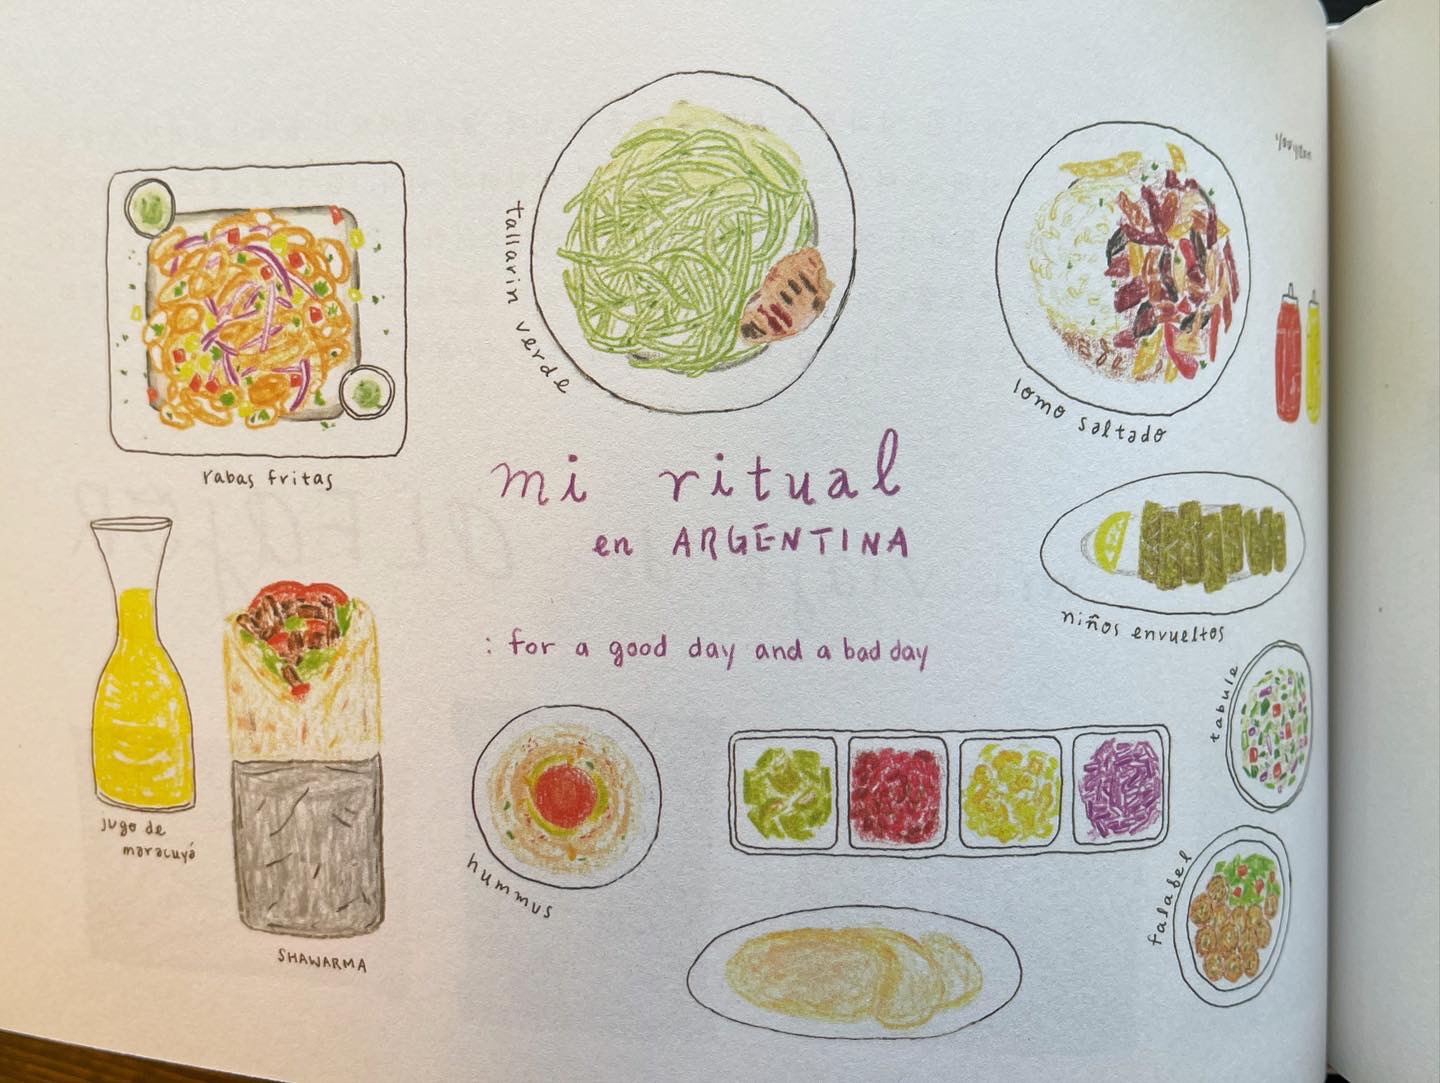 tallarin verde
lomo saltado
rabas fritas
mi ritual
en ARGENTINA
: for a good day and a bad day
niños envueltos
tabule
jugo de
maracuyá
SHAWARMA
hummus
falabel